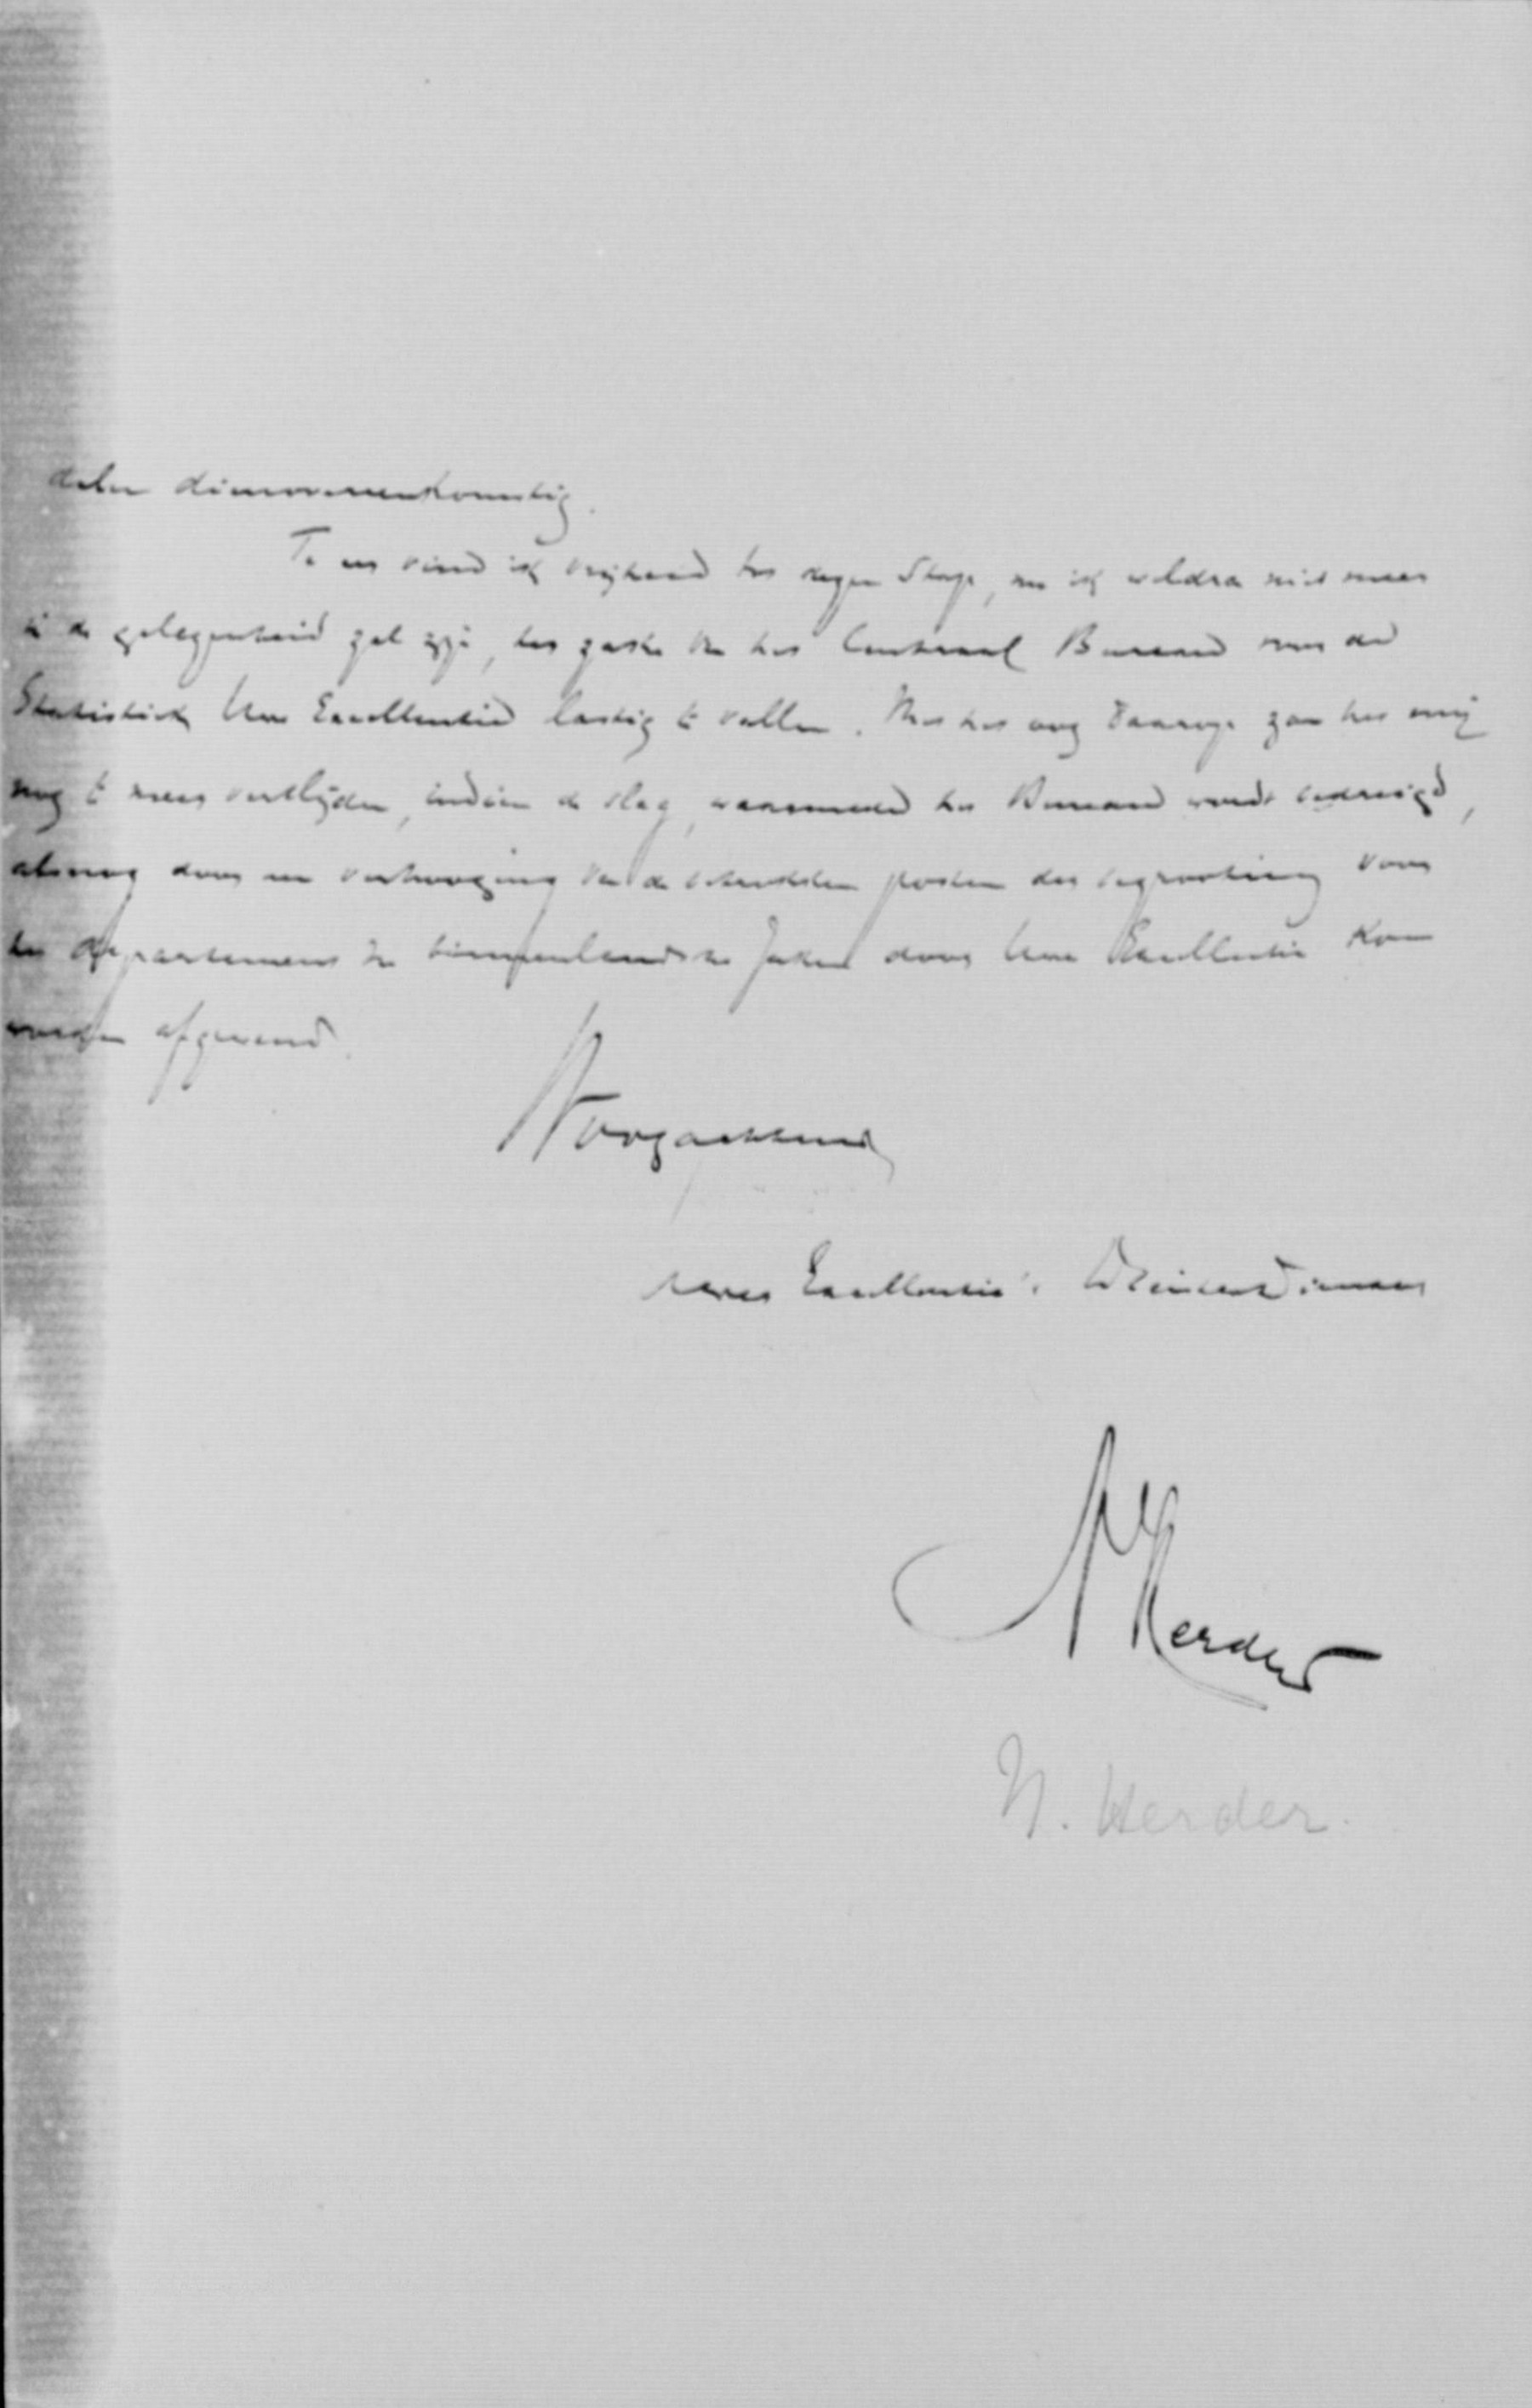 delen dienovereenkomstig.
Te eer vind ik vrijheid tot dezen stap, nu ik weldra niet meer
in de gelegenheid zal zijn, ten zake van het Centraal Bureau voor de
Statistiek Uwe Excellentie lastig te vallen. Met het oog daarop zou het mij
nog te meer verblijden, indien de slag, waarmede het Bureau wordt bedreigd,
alsnog door een verhooging van de betrokken posten der begrooting voor
het departement van binnenlandsche Zaken door Uwe Excellentie kon
worden afgewend.
Hoogachtend
Uwer Excellentie's Dienaar
N Herder
N. Herder.